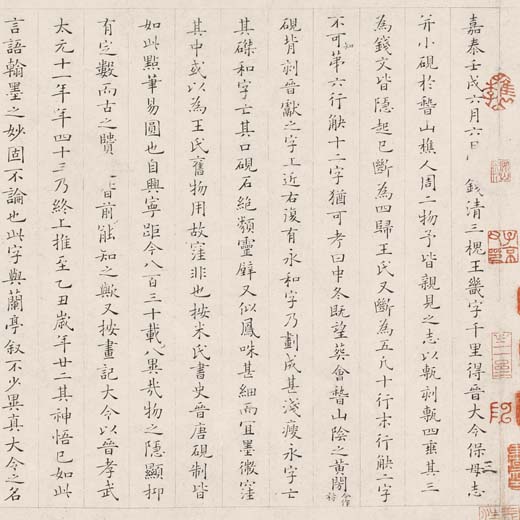 嘉泰壬戌六月六日 錢清三槐王畿字千里得晉大令保母志
并小硯於嵇山樵人周二物予皆親見之志以甎刻甎四垂其三
為錢文皆隱起已斷為四歸王氏又斷為五凡十行末行缺二字
不可知第六行缺十二字猶可考曰中冬既望葬會嵇山陰之黃閍
硯背刻晉獻之字上近右復有永和字乃劃成甚淺瘦永字亡
其磔和字亡其口硯石絕類靈壁又似鳳咮甚細而宜墨微窪
其中或以為王氏舊物用故窪非也按米氏書史晉唐硯制皆
如此點筆易圓也自興寧距今八百三十載八異哉物之隱顯抑
有定數而古之賢 前能知之歟又按畫記大令以晉孝武
太元十一年年四十三乃終上推至乙丑歲年廿二其神悟已如此
言語翰墨之妙固不論也此字與蘭亭敘不少異真大令之名